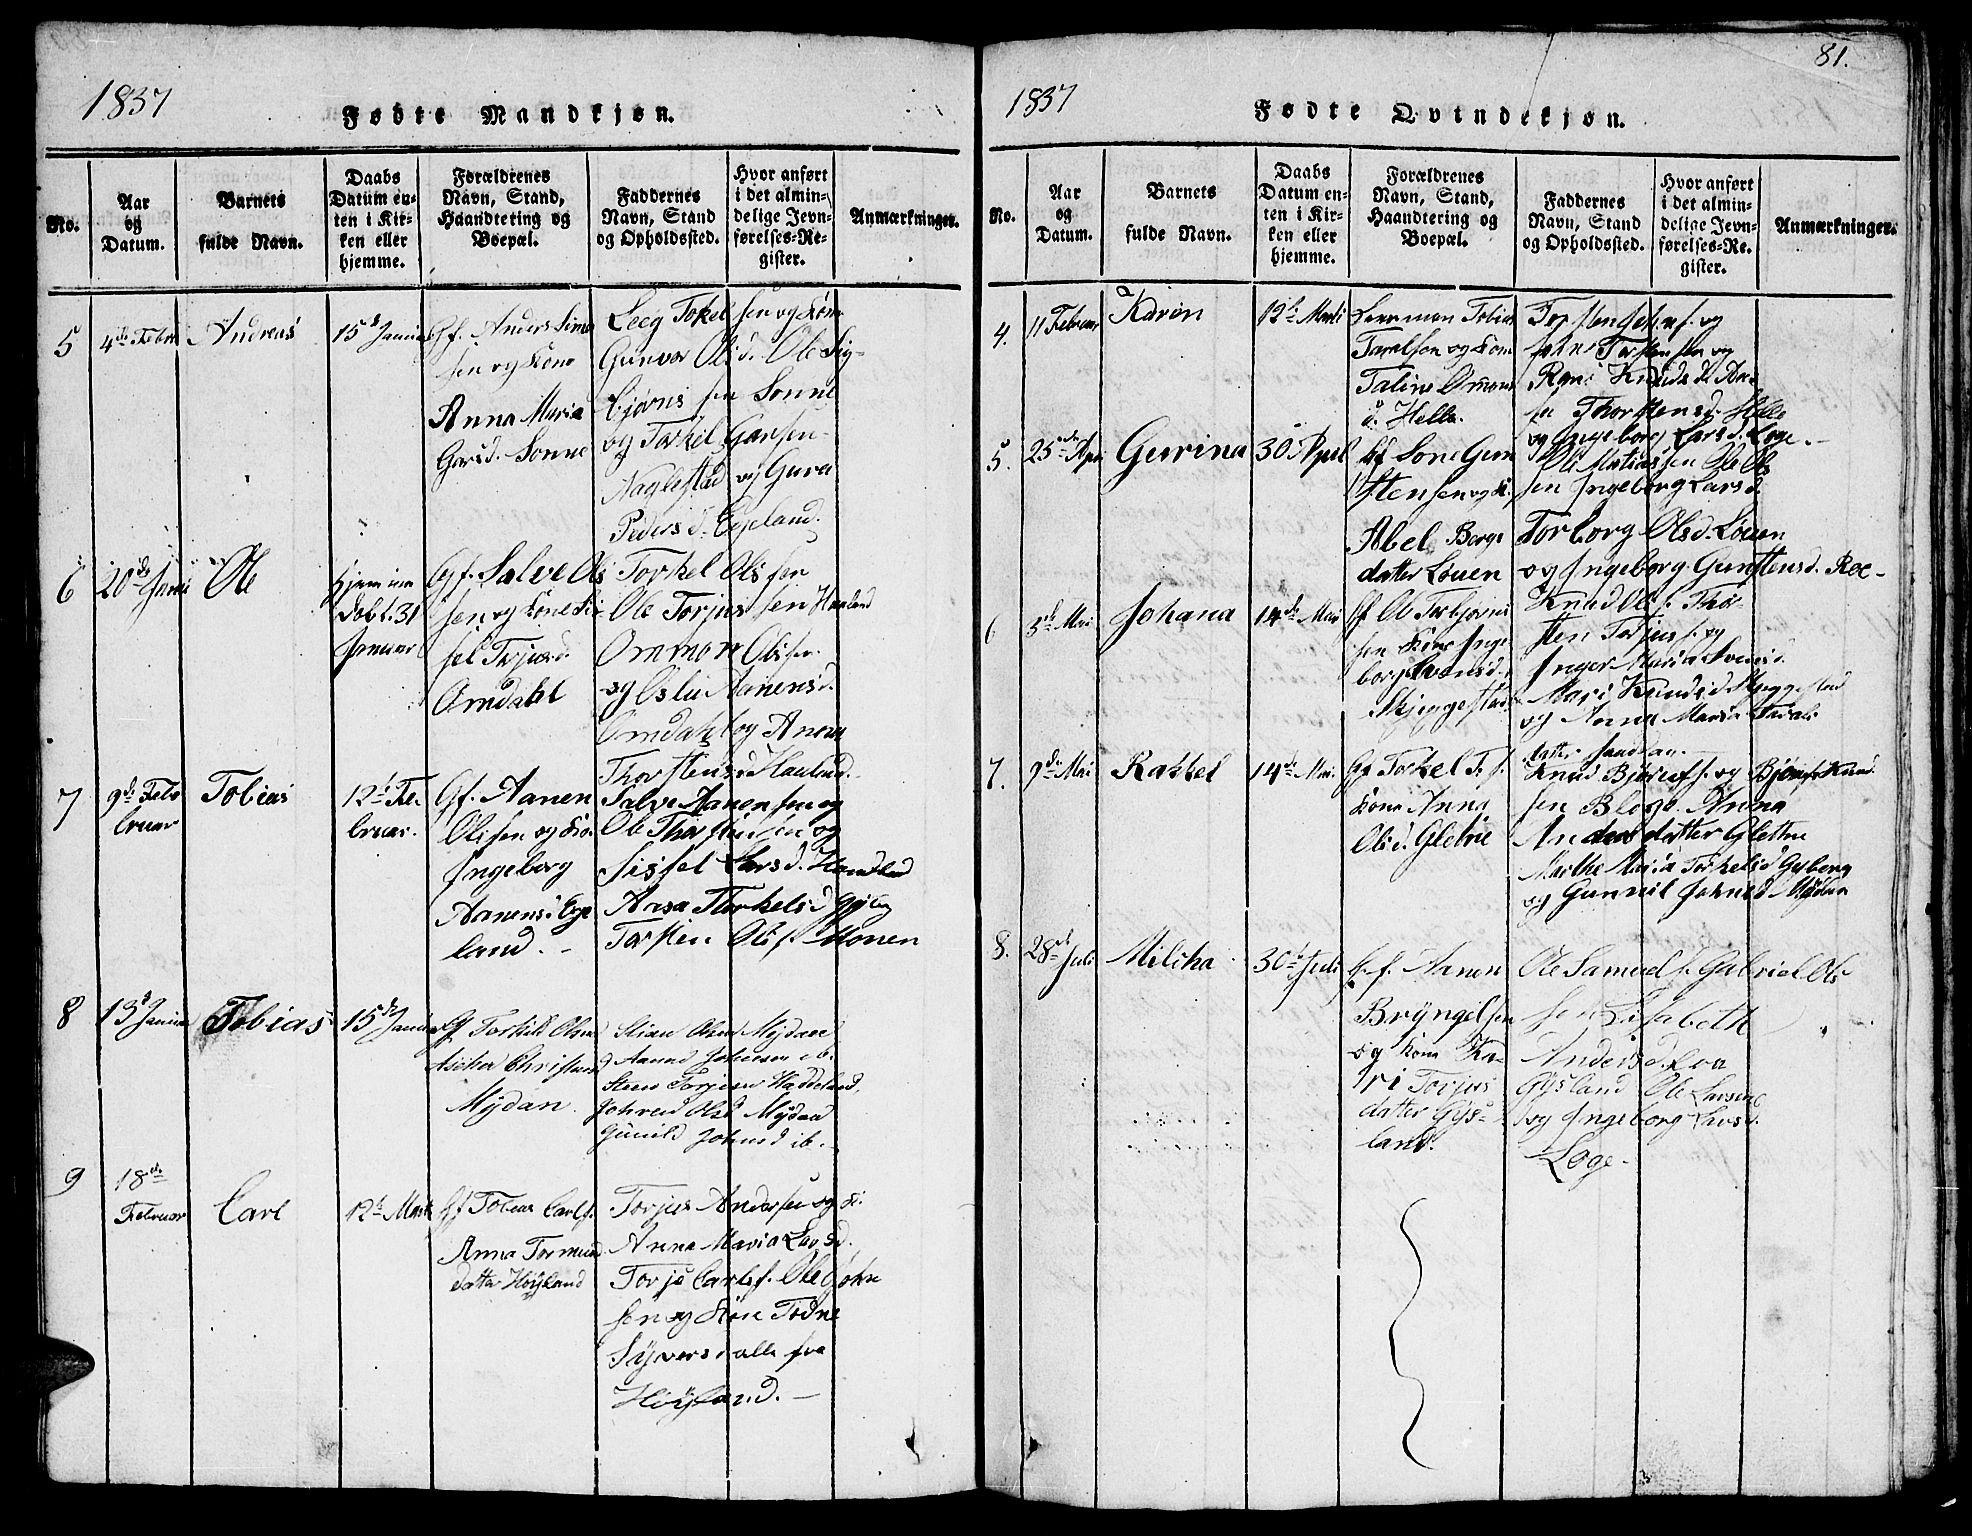 1837
Fødte Mandkjøn.
No.
Aar
og
Datum.
Barnets
fulde Navn.
Daabs
Datum en-
ten i Kir-
ken eller
hjemme.
Forældrenes
Navn, Stand,
Haandtering og
Boepæl.
Faddernes
Navn, Stand
og Opholdssted.
Hvor anført
i det almin-
delige Jevn-
førelses-Re-
gister.
Anmærkninger.
5
4de Febr
Andreas
Gf. Anders Simo
sen og Kone
Anna Maria
Garsd. Sonne
Leeg Tokel sen og Kone
Gunvor Olsd. Ole Sig-
bjørns sen Sonne
og Torkel Garsen
Naglestad og Gura
Peders d. Egeland.
6
20de Janu
Ole
Hjemme
døbt. 31
Januar
Gf. Salve Ols
sen og Kone Si
sel Torjusd.
Omdahl
Torkel Ols sen
Ole Torjus sen Haaland
Ommon Olssen
og Aanensd.
Omdahl og Anna
Thorstens d Haaland.
7
9de Feb
bruar
Tobias
12t Fe.
bruar.
Gf. Aanen
Olssen og Ko.
Ingeborg
Aanensd Ege
land. -
Salve Aanensen og
Ole Thorstensen og
Sissel Larsd. Haaland
Aasa Torkelsd Gyberg
Torsten Ols f. Monen
8
13d Januar
Tobias
15d Januar
Gf Torkild Olsen
Christens
Mydan.
Stian Olsen Mydan
Aanund Johnsen ib.
Steen Torjesen Haddeland,
Johanne Olsd Mydan
Gunild Johnsd ib. -
9
18de
Februar
Carl
12t Marts
Gf Tobias Carlsf.
Anna Tormund
datter Höyland
Torjus Andersen og K.
Anna Maria Larsd.
Torjs Carlsf. Ole John
sen og Kone Todne
Syvers d alle fra
Höyland. -
81.
1837
Fødte Qvindekjøn.
No.
Aar
og
Datum.
Barnets
fulde Navn.
Daabs
Datum en-
ten i Kir-
ken eller
hjemme.
Forældrenes
Navn, Stand,
Haandtering og
Boepæl.
Faddernes
Navn, Stand
og Opholdssted.
Hvor anført
i det almin-
delige Jevn-
førelses-Re-
gister.
Anmærkninger.
4.
11 Februar
Karen
12t Marti
Tobias
Taralsen og Kone
Taline Omons
d. Helle.
Torsten Johns f. og
John Torstensen og
Rani Knuds d.
Thorstens d. Helle
og Ingeborg Larsd. Loge. -
5.
25de Apri
Gurina
30 April
Gf Sone Gun
stensen og K.
Abel Bergs
datter Louen
Ole Matiassen Ole Ols
sen Ingeborg Larsd.
Torborg Olsd. Louen
og Ingeborg Gunstensd. Roe-
6
Johana
14de Mai
Gf Ole Torbjorns
sen Kone Inge
borg Svensd.
Skjeggestad
Knud Ols f. Thor-
sten Torjus f. og
Inger Maria Svensd.
Mari Knudsd Skjeggestad
og Anna Maria Tarals
datter Sanddan.
7.
9de Mai
Rakkel
14de Mai.
Gf Torkel T. f.
Kone Anna
Olsd. Glettne
Knud Bjornsf. og Bjorn Knud
sen Anna
Anders datter Glettne
Marthe Maria Torkelsd Gyberg
og Gunnil Johnsd Mydan
8.
28de
Juli
Milcha
30t Juli
G. f. Aanen
Bryngelsen
og Kone Ka-
ri Torjus
datter Gys-
land.
Ole Samuels f. Gabriel Ols
sen Lisabeth
Anders d. Loa
Gysland Ole Larsen
og Ingeborg Larsd.
Loge. -